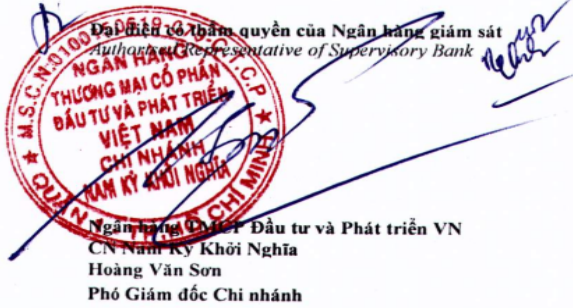 Đại diện có thẩm quyền của Ngân hàng giám sát
Authorised Representative of Supervisory Bank
NGÂN HÀNG
THƯƠNG MẠI CỔ PHẦN
ĐẦU TƯ VÀ PHÁT TRIỂN
VIỆT NAM
CHI NHÁNH
NAM KỲ KHỞI NGHĨA
QUẬN 1 - TP. HỒ CHÍ MINH
Ngân hàng TMCP Đầu tư và Phát triển VN
CN Nam Kỳ Khởi Nghĩa
Hoàng Văn Sơn
Phó Giám đốc Chi nhánh